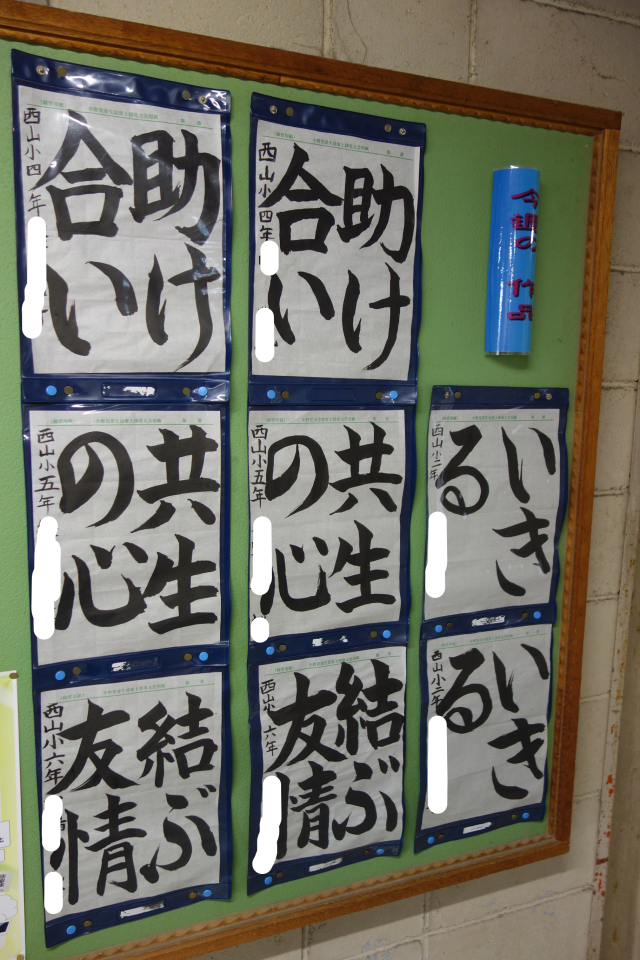 今週の作品
助け
合い
西山小四年
助け
合い
西山小四年
共生
の心
西山小五年
共生
の心
西山小五年
いき
る
西山小二年
結ぶ
友情
西山小六年
結ぶ
友情
西山小六年
いき
る
西山小二年